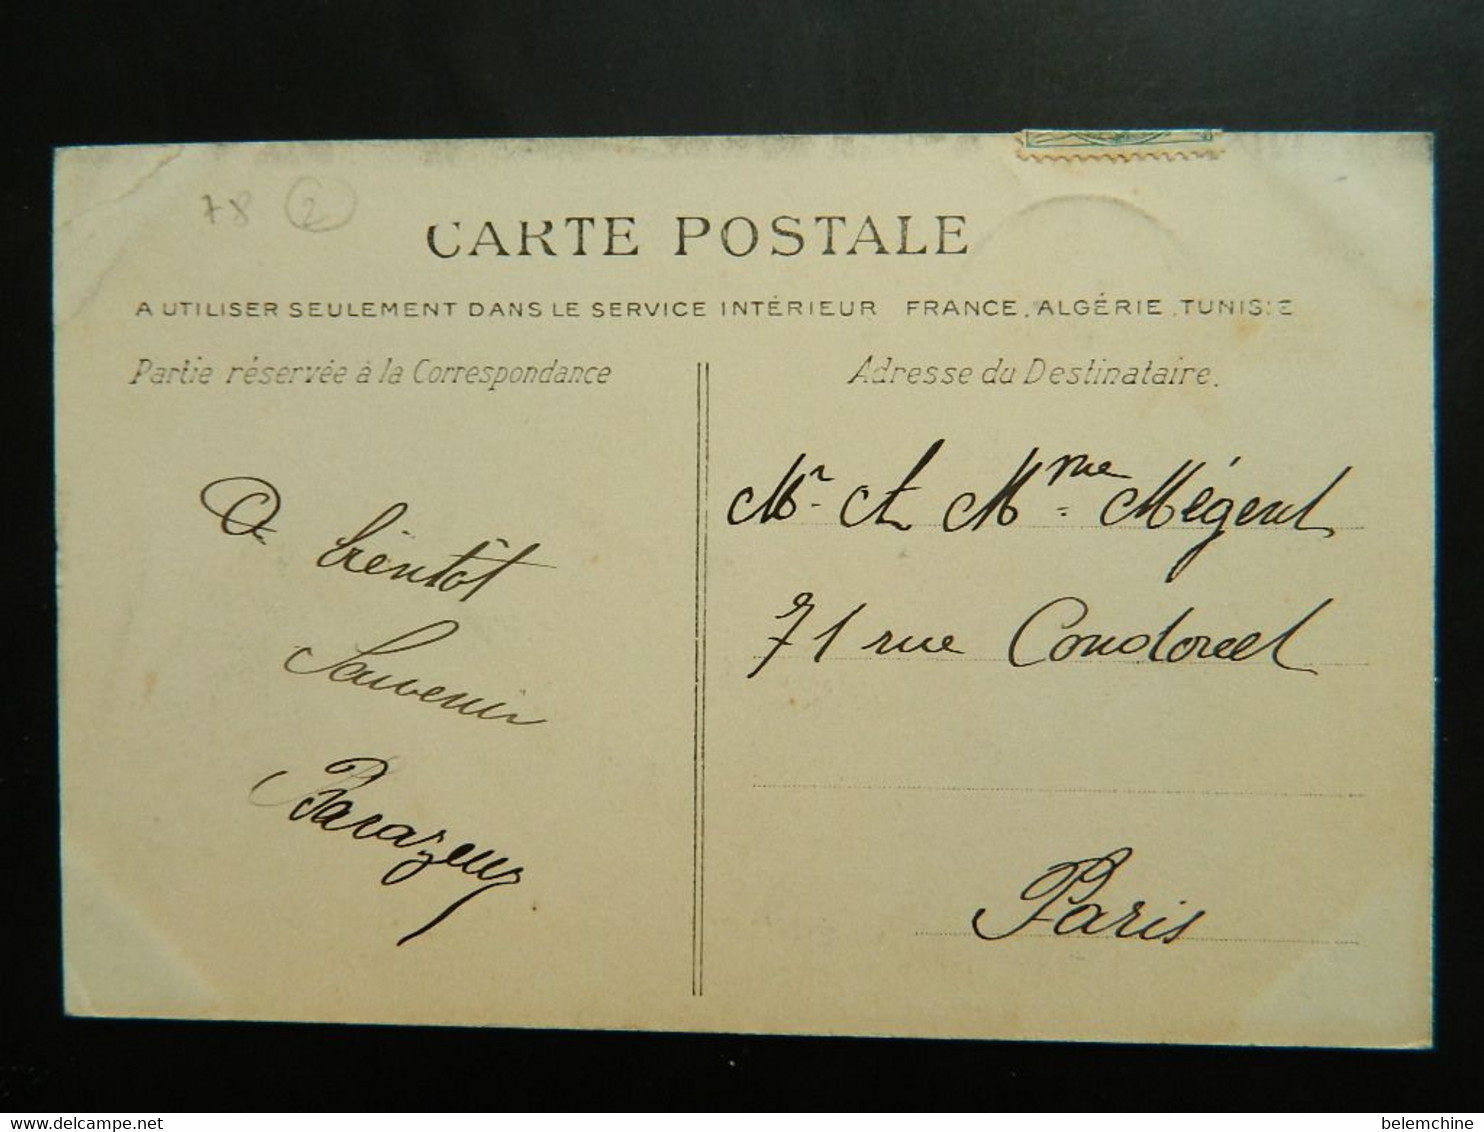 78 2
CARTE POSTALE
A UTILISER SEULEMENT DANS LE SERVICE INTÉRIEUR FRANCE, ALGÉRIE, TUNISIE
Partie réservée à la Correspondance
Adresse du Destinataire.
A bientôt
Souvenir
Mr et Mme Mégent
71 rue Condorcet
Paris
delcampe.net
belemchine